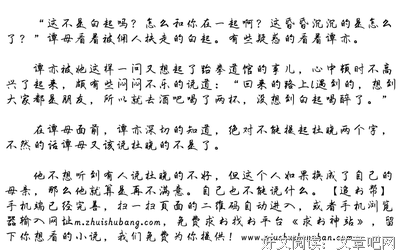 “这不是白起吗？怎么和你在一起啊？这昏昏沉沉的是怎么
了？”谭母看着被佣人扶走的白起。有些疑惑的看着谭亦。
谭亦被她这样一问又想起了跆拳道馆的事儿，心中顿时不高
兴了起来，颇有些闷闷不乐的说道：“回来的路上l遇到的，想到
大家都是朋友，所以就去酒吧喝了两杯，没想到白起喝醉了。”
在谭母面前，谭亦深切的知道，绝对不能提起杜晚两个字，
不然的话谭母又该说杜晚的不是了。
他不想听到有人说杜晚的不好，但这个人如果换成了自己的
母亲，那么他就算是再不满意。自己也不能说什么。【追书帮】
手机端已经完善，扫一扫页面的二维码自动进入，或者手机浏览
器输入网址m.zhuishubang.com，免费求书找书平台《求书神站》，留
下你想看的小说，我们免费为你提供！
好文阅读：文章吧网